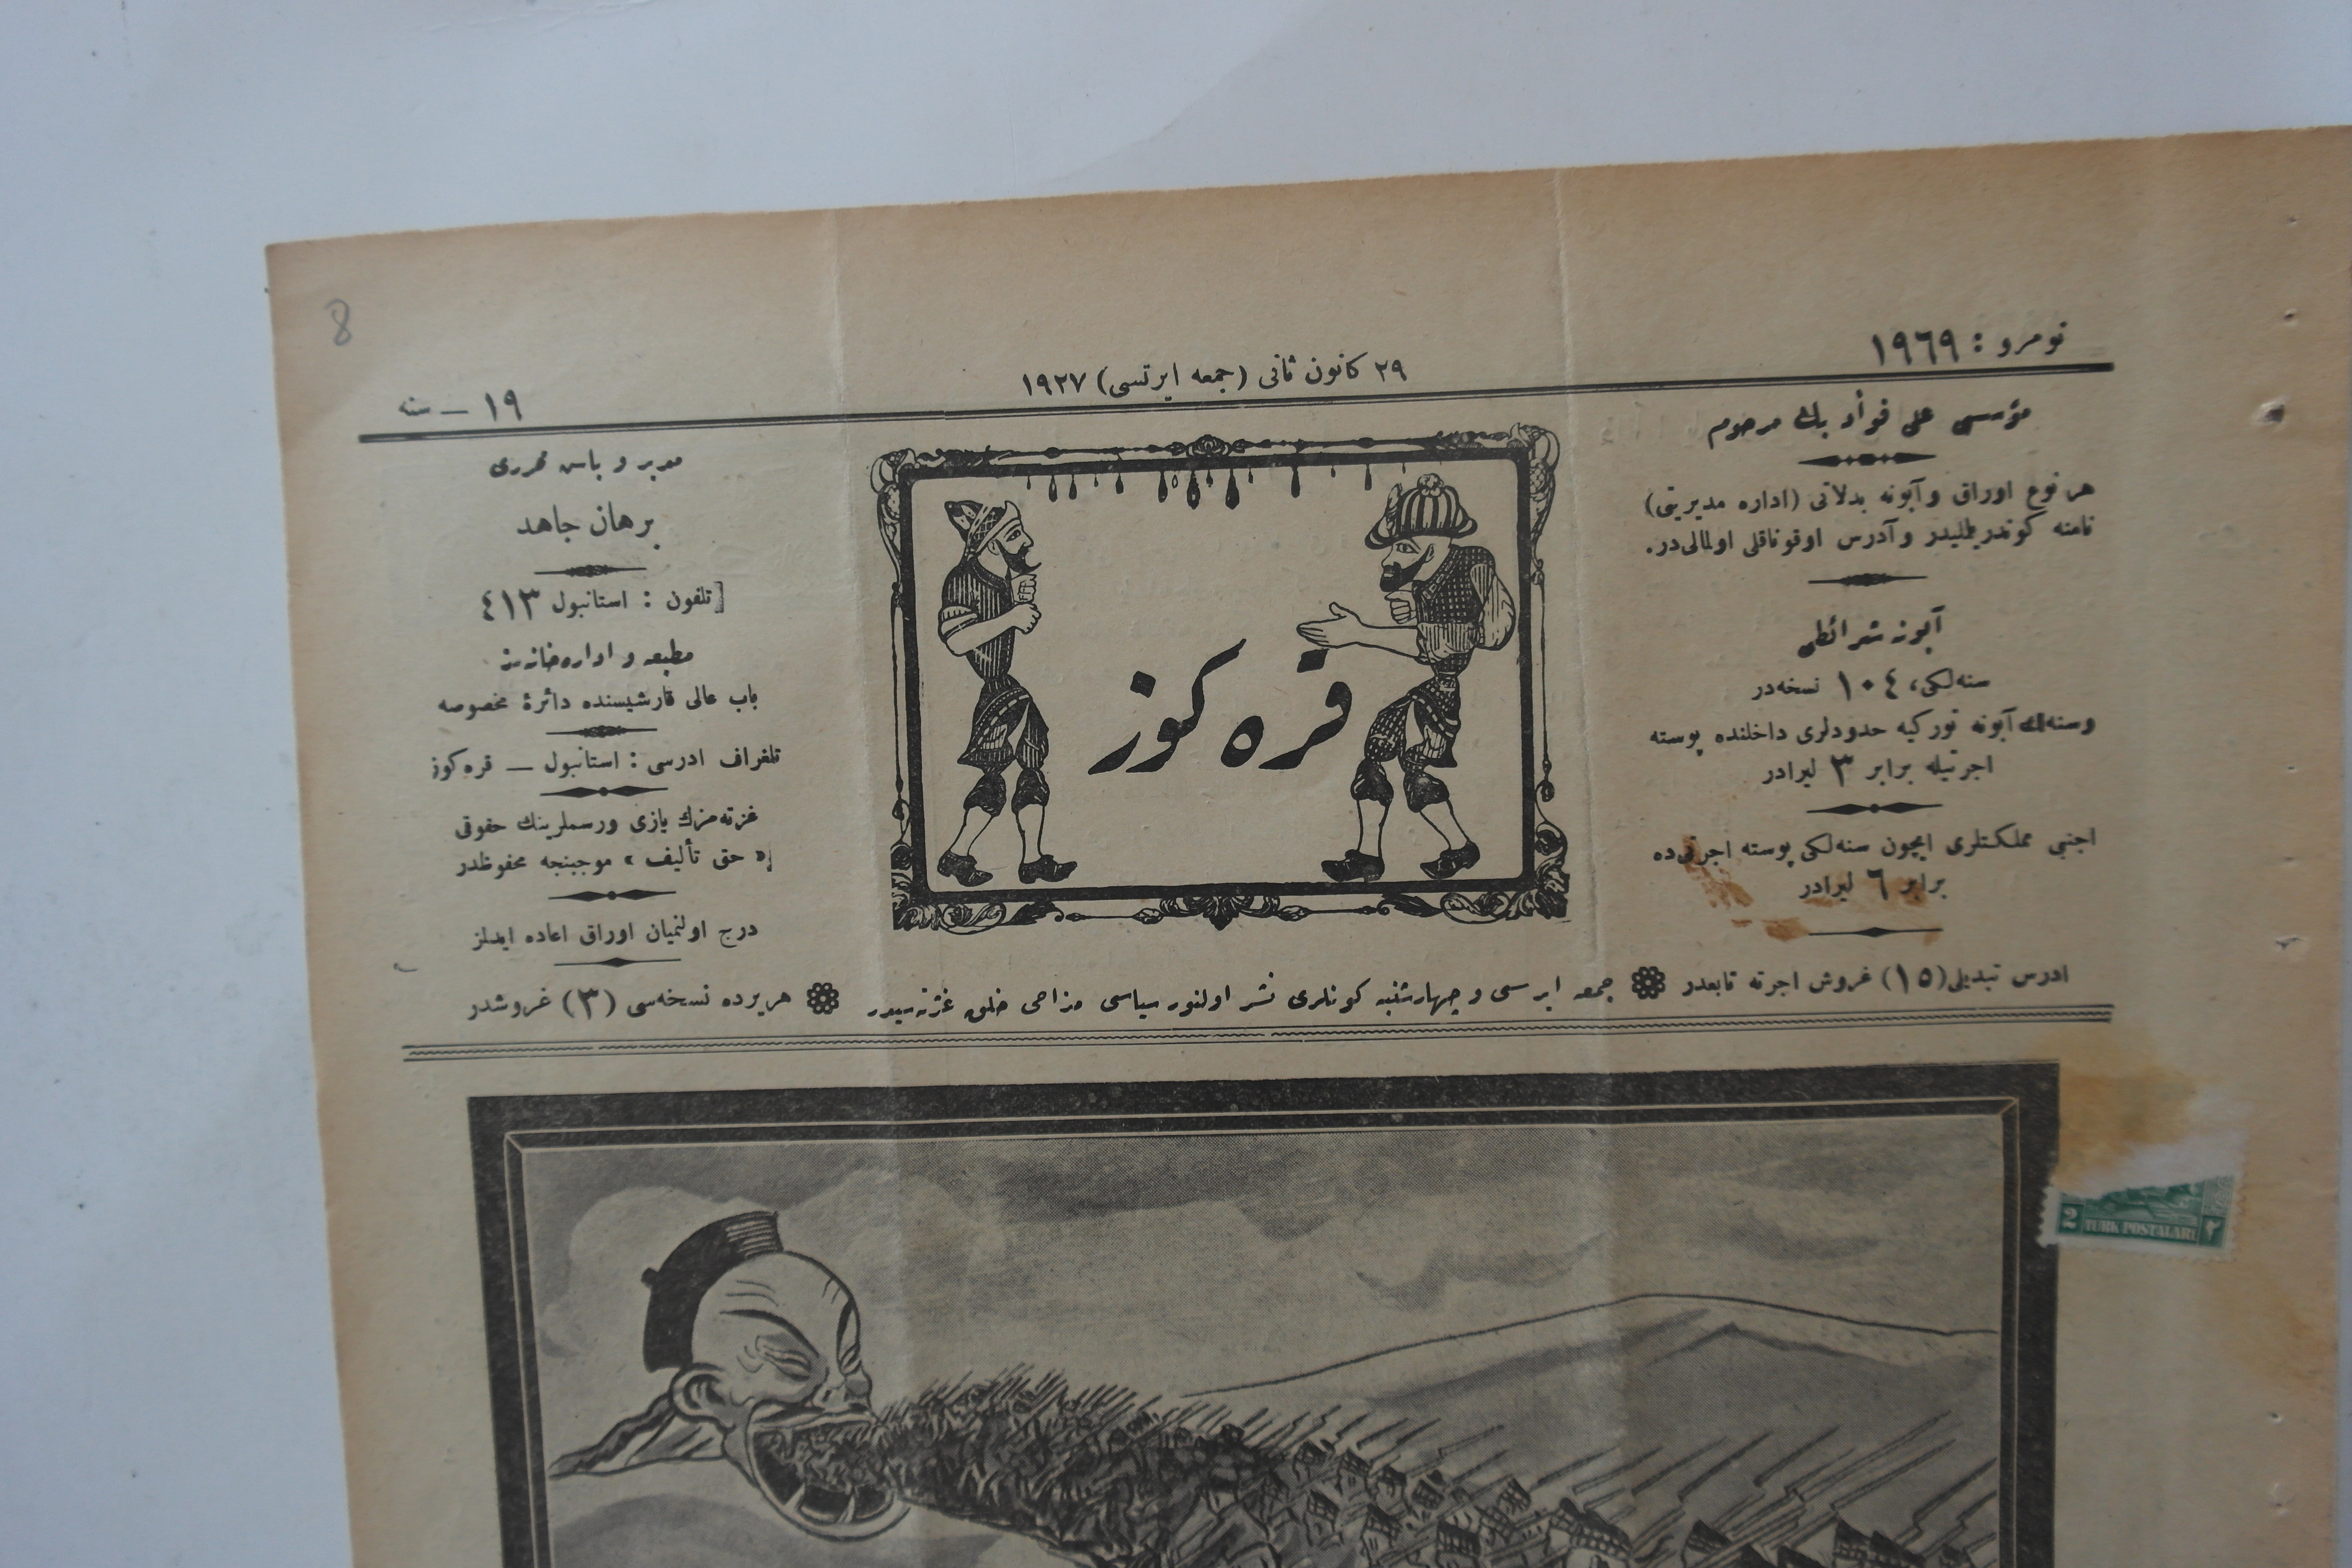 نومرو : ١٩٦٩
٢٩ كانون ثانی (جمعه ايرتسی) ١٩٢٧
١٩ — سنه
8
مؤسسی علی فوأد بك مرحوم
هر نوع اوراق و آبونه بدلاتی (اداره مديريتی)
نامنه كوندريلمليدر و آدرس اوقوناقلی اولمالی‌در.
آبونه شرائطی
سنه‌لكی، ١٠٤ نسخه‌در
وسنه‌لك آبونه توركيه حدودلری داخلنده پوسته
اجرتيله برابر ٣ ليرادر
اجنبی مملكتلری ايچون سنه‌لكی پوسته اجرتی‌ده
برابر ٦ ليرادر
قره كوز
مدير و باش محرری
برهان جاهد
[تلفون : استانبول ٤١٣
مطبعه و اداره‌خانه‌سی
باب عالی قارشيسنده دائرهٔ مخصوصه
تلغراف ادرسی : استانبول — قره‌كوز
غزته‌مزك يازی و رسملرينك حقوقی
« حق تأليف » موجبنجه محفوظدر
درج اولنميان اوراق اعاده ايدلمز
ادرس تبديلی (١٥) غروش اجرته تابعدر
جمعه ايرتسی و چهارشنبه كونلری نشر اولنور سياسی مزاحی خلق غزته‌سيدر
هر يرده نسخه‌سی (٣) غروشدر
2 TURK POSTALARI ٢